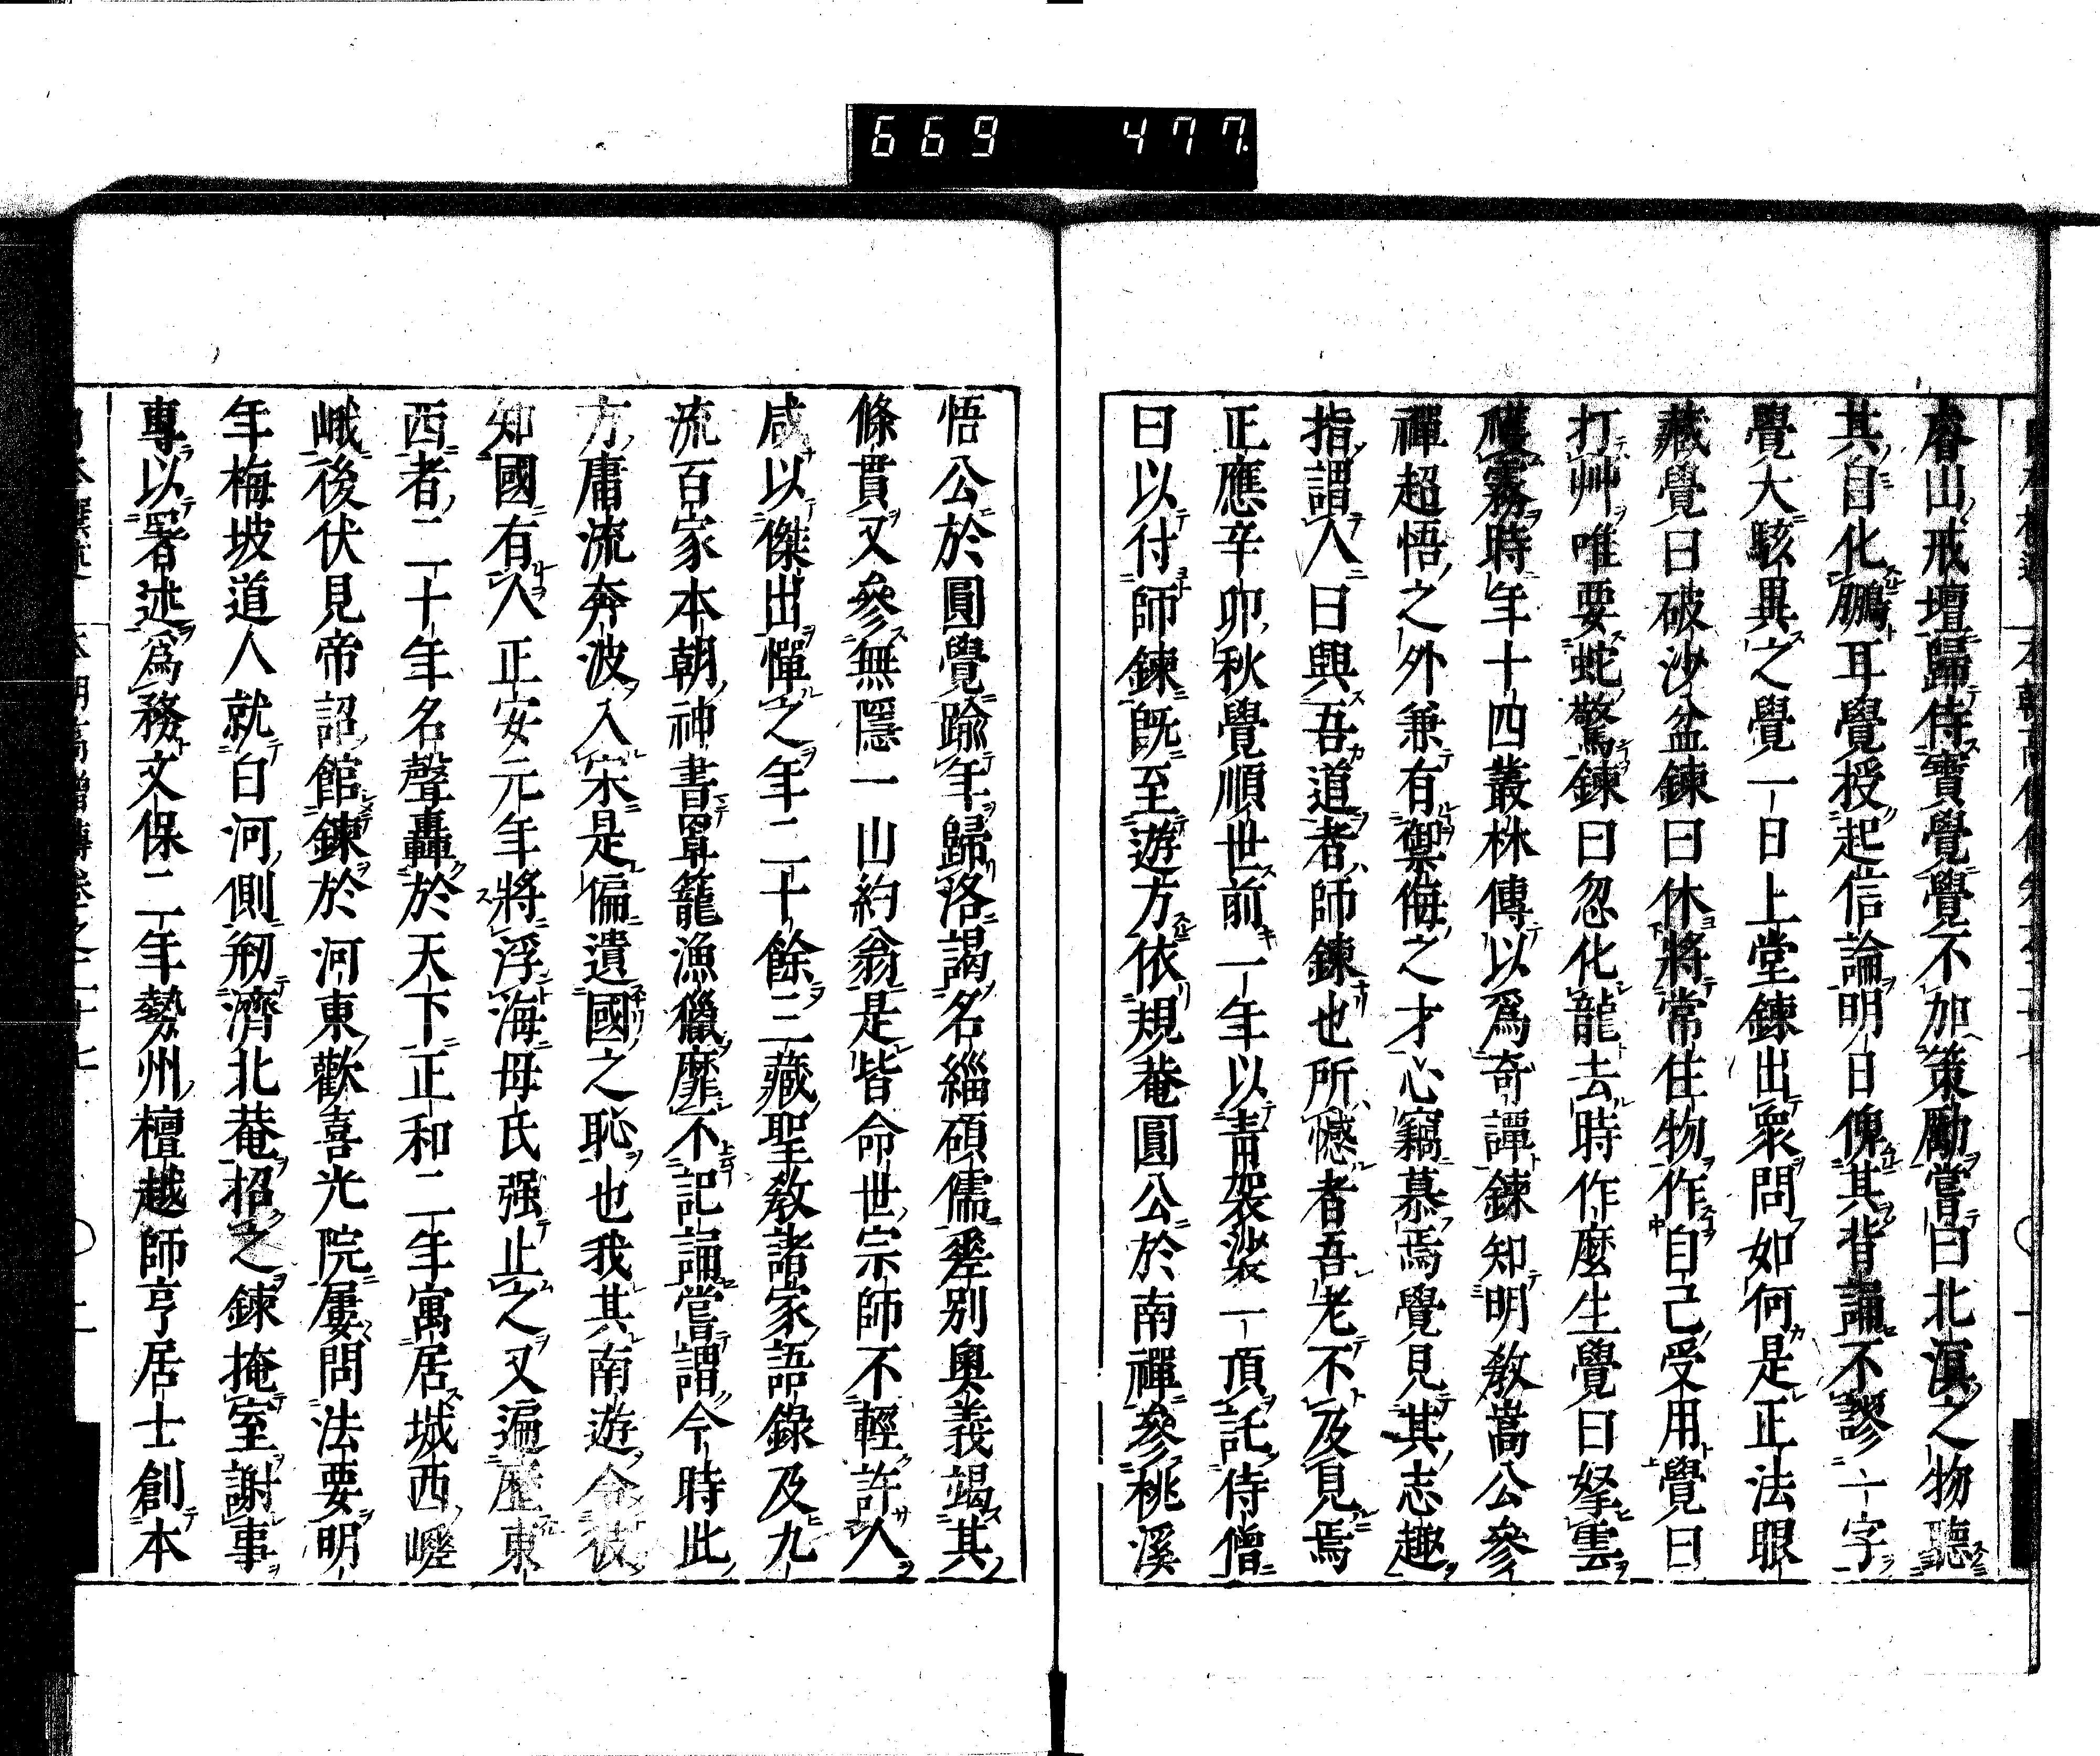 669 477
睿山戒壇歸侍寶覺覺不加策勵嘗曰北溟之物聽
其自化鵬耳覺授起信論明日俾其背誦不謬一字
覺大駭異之覺一日上堂鍊出衆問如何是正法眼
藏覺曰破沙盆鍊曰休將常住物作自己受用覺曰
打艸唯要蛇驚鍊曰忽化龍去時作麼生覺曰拏雲
攫霧時年十四叢林傳以爲奇譚鍊知明教嵩公參
禪超悟之外兼有禦侮之才心竊慕焉覺見其志趣
指謂人曰興吾道者師鍊也所憾者吾老不及見焉
正應辛卯秋覺順世前一年以青袈裟一頂託侍僧
曰以付師鍊既至遊方依規菴圓公於南禪參桃溪
悟公於圓覺踰年歸洛謁名緇碩儒差別奧義竭其
條貫又參無隱一山約翁是皆命世宗師不輕許人
咸以傑出憚之年二十餘三藏聖教諸家語錄及九
流百家本朝神書罩籠漁獵靡不記誦嘗謂今時此
方庸流奔波入宋是偏遺國之恥也我其南遊令彼
知國有人正安元年將浮海母氏强止之又遍歷東
西者二十年名聲轟於天下正和二年寓居城西嵯
峨後伏見帝詔館鍊於河東歡喜光院屢問法要明
年梅坡道人就白河側剏濟北菴招之鍊掩室謝事
專以署述爲務文保二年勢州檀越師亨居士創本